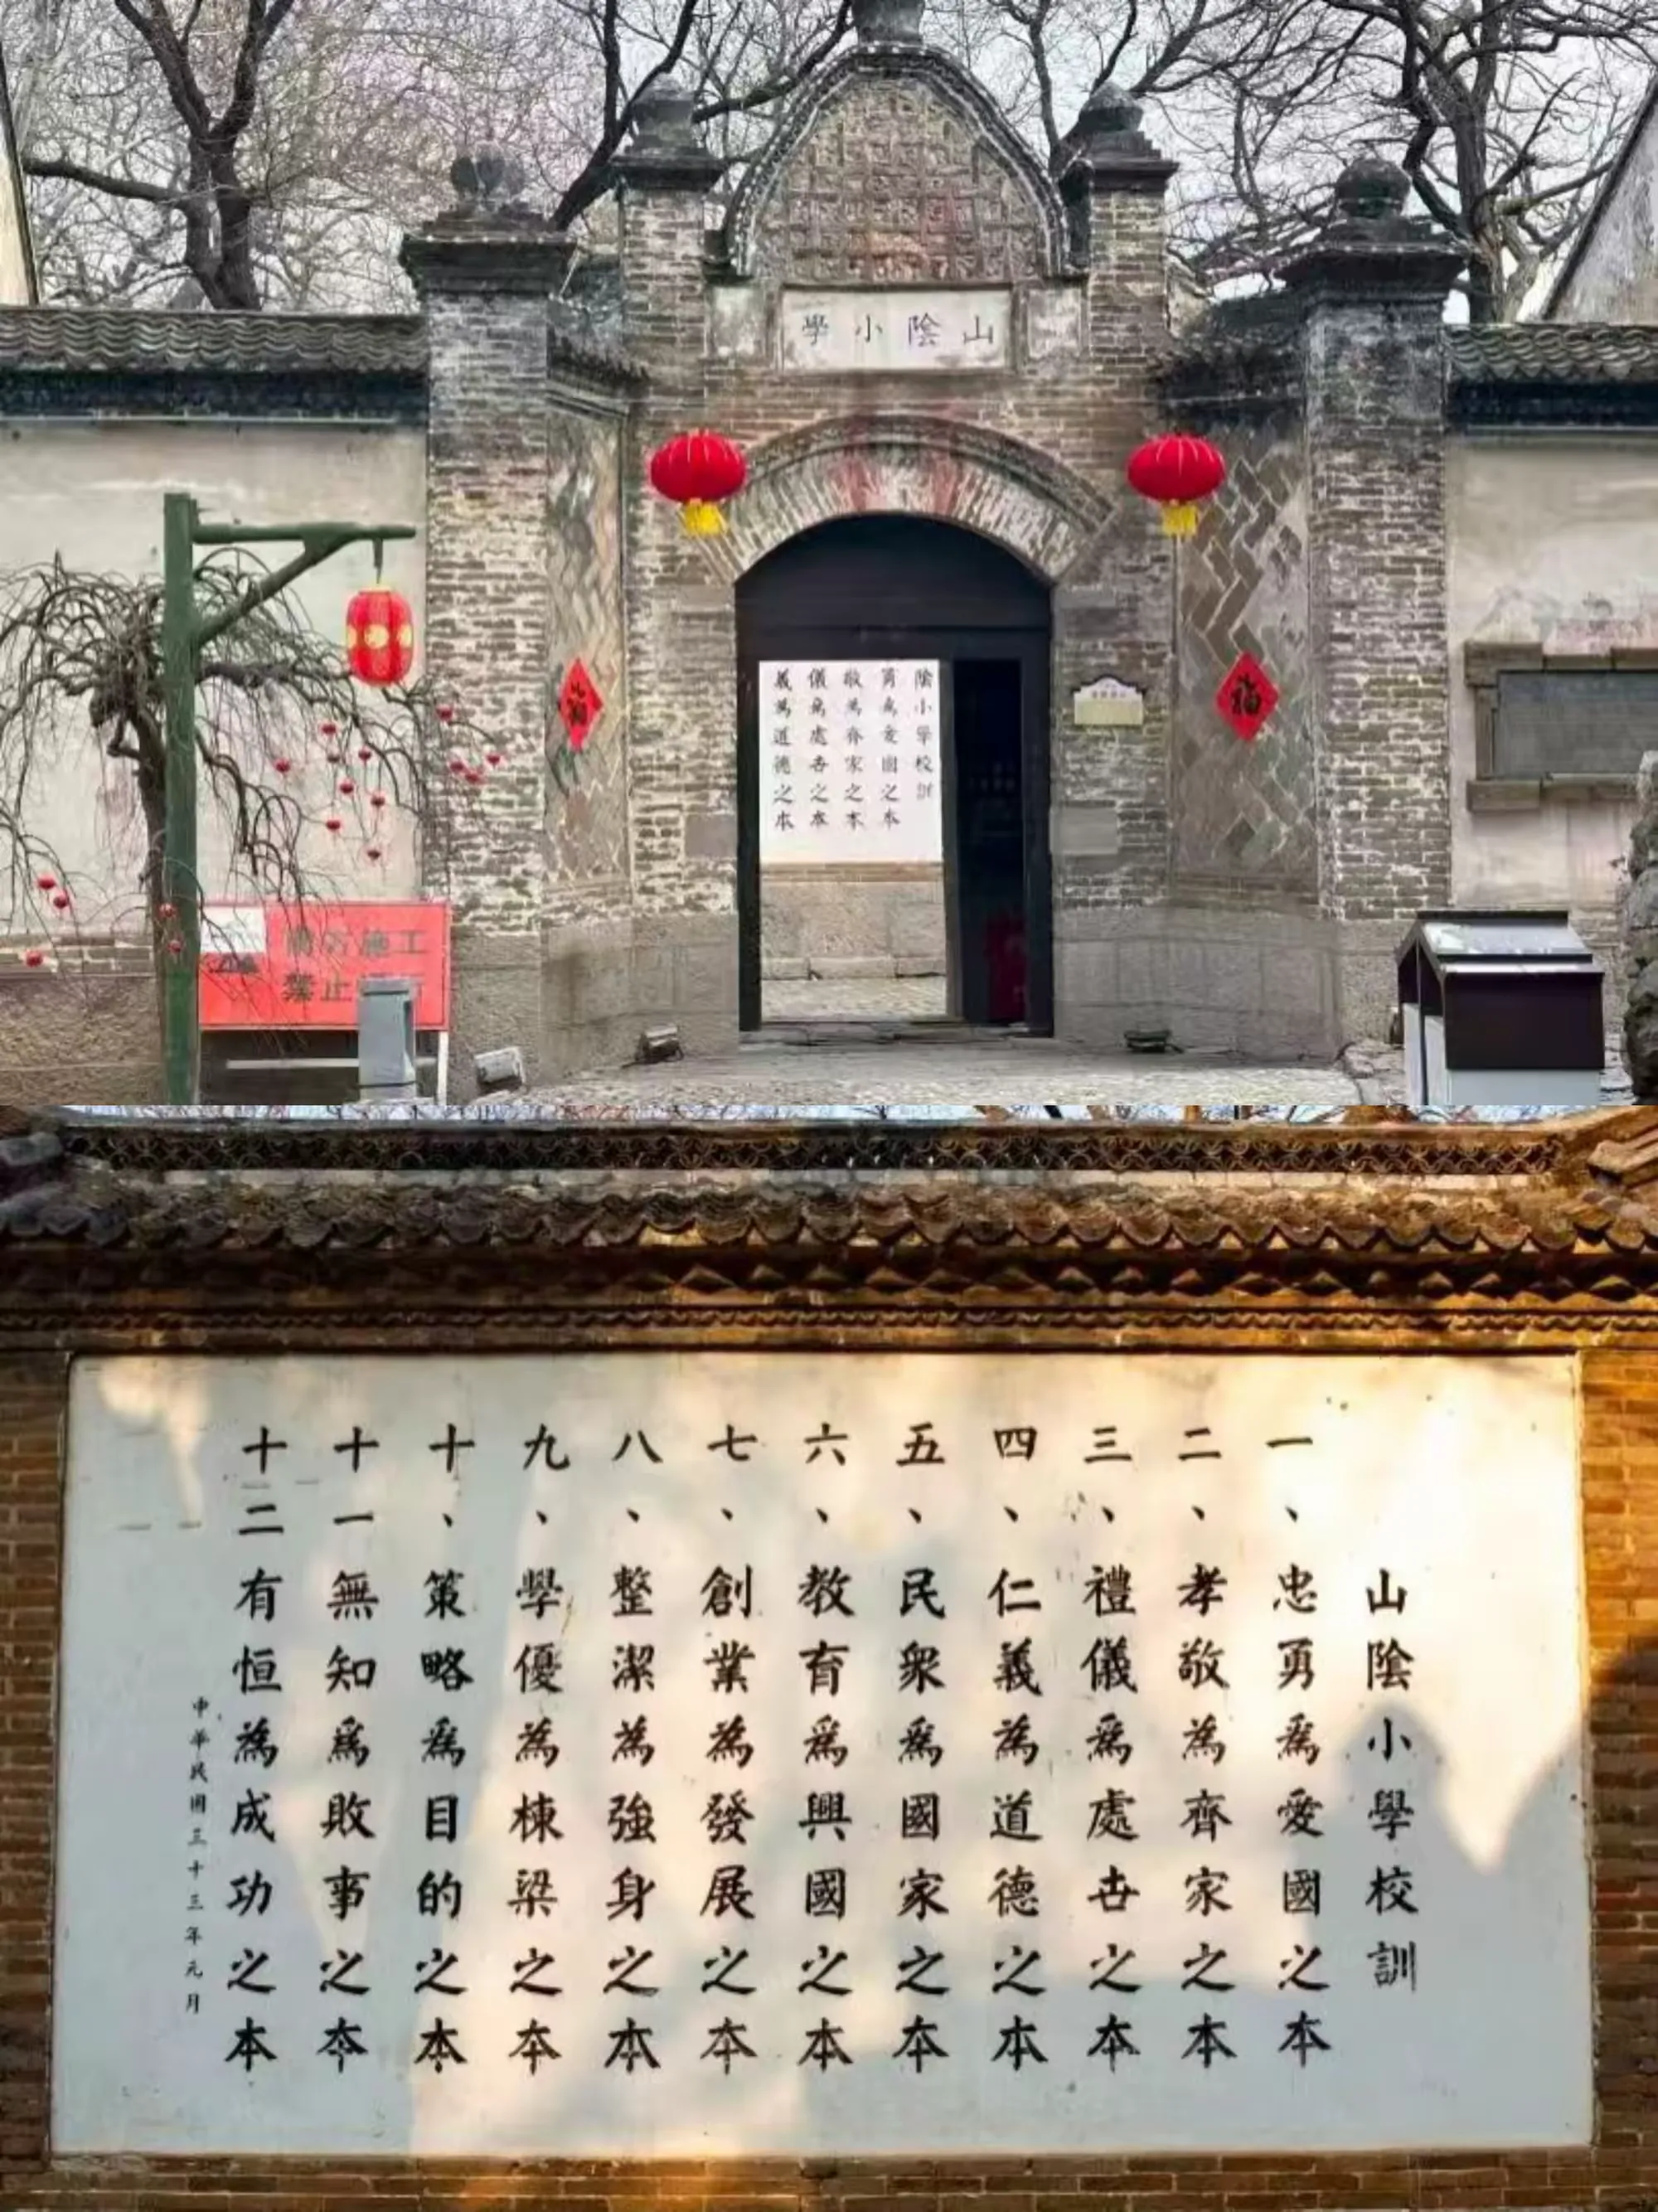 學小陰山
福
福
陰小學校訓
勇為愛國之本
敬為齊家之本
儀為處世之本
義為道德之本
施工
禁止
山陰小學校訓
一、忠勇為愛國之本
二、孝敬為齊家之本
三、禮儀為處世之本
四、仁義為道德之本
五、民眾為國家之本
六、教育為興國之本
七、創業為發展之本
八、整潔為強身之本
九、學優為棟梁之本
十、策略為目的之本
十一無知為敗事之本
十二有恒為成功之本
中華民國三十三年元月